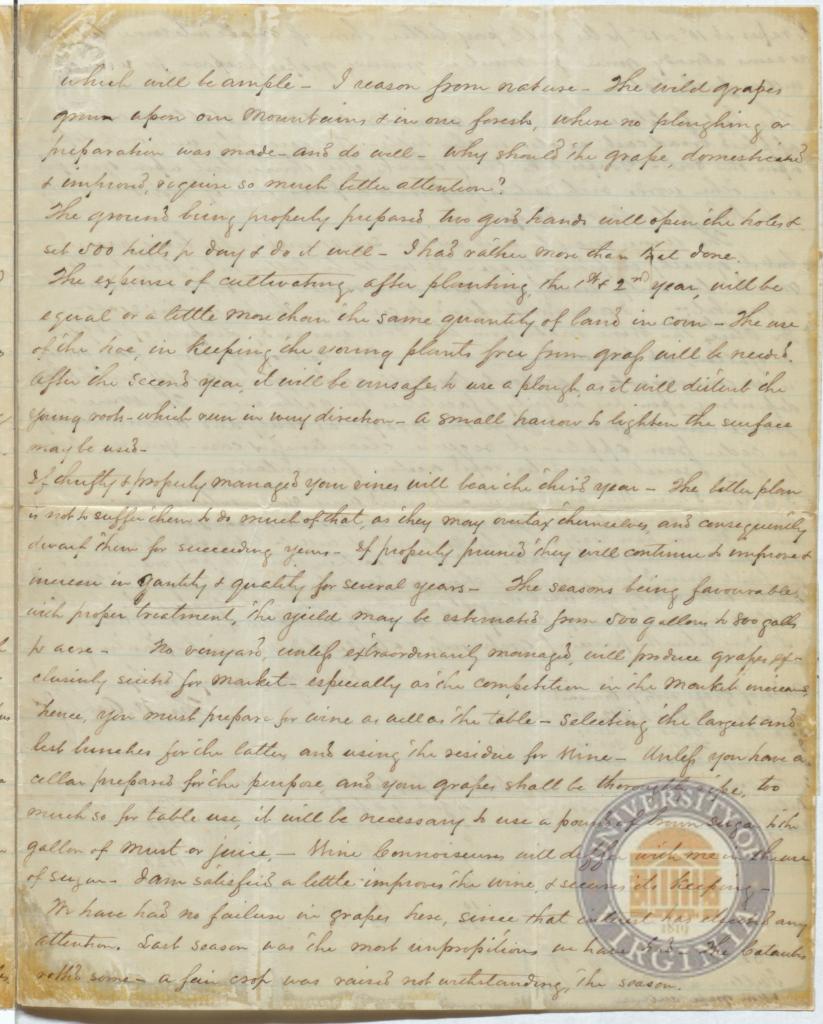 which will be ample - I reason from nature - The wild grapes
grow upon our Mountains & in our forests, where no ploughing or
preparation was made - and do well - Why should the grape, domesticated
& improved, require so much better attention?
The ground being properly prepared two good hands will open the holes &
set 500 hills pr day & do it well - I had rather more than that done.
The expense of cultivating, after planting, the 1st & 2nd year, will be
equal or a little more than the same quantity of land in corn - The use
of the hoe, in keeping the young plants free from grass will be needed.
After the second year, it will be unsafe to use a plough, as it will disturb the
young roots - which run in every direction - a small harrow to lighten the surface
may be used -
If thrifty & properly managed your vines will bear the third year - The better plan
is not to suffer them to do much of that, as they may overtax themselves, and consequently
dwarf them for succeeding years - If properly pruned they will continue to improve &
increase in qantity & quality for several years - The seasons being favourable,
with proper treatment, the yield may be estimated from 500 gallons to 800 galls
pr acre - No vinyard, unless extraordinarily managed, will produce grapes ex-
clusively suited for market - especially as the competition in the market increases,
hence, you must prepare for wine as well as the table - selecting the largest and
best bunches for the latter, and using the residue for Wine - Unless you have a
cellar prepared for the purpose, and your grapes shall be thoroughly ripe, too
much so for table use, it will be necessary to use a pound of brown sugar to the
gallon of must or juice, - Wine Connoiseures will differ with me in the use
of sugar - I am satisfied a little improves the wine, & secures its keeping -
We have had no failure in grapes here, since that interest has any
attention. Last season was the most unpropitious we have had - The Catawba
rotted some - a fair crop was raised not withstanding, the season.
UNIVERSITY OF VIRGINIA
1819